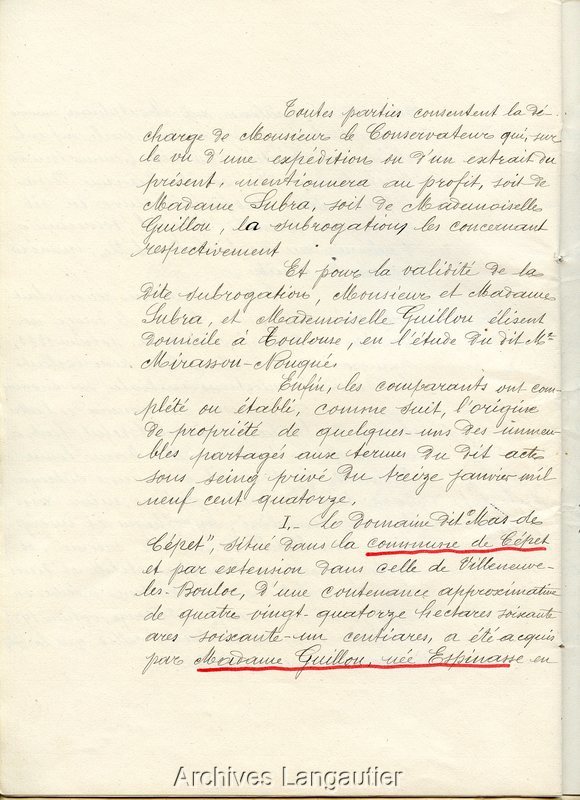 Toutes parties consentent la dé-
charge de Monsieur le Conservateur qui, sur
le vu d'une expédition ou d'un extrait du
présent, mentionnera au profit, soit de
Madame Subra, soit de Mademoiselle
Guillou, la subrogation les concernant
respectivement
Et pour la validité de la
dite subrogation, Monsieur et Madame
Subra, et Mademoiselle Guillou élisent
domicile à Toulouse, en l'étude du dit Me
Mirassou-Nougué.
Enfin, les comparants ont com-
plété ou établi, comme suit, l'origine
de propriété de quelques-uns des immeu-
bles partagés aux termes du dit acte
sous seing privé du treize janvier mil
neuf cent quatorze.
I.- Le Domaine dit "Mas de
Cépet", situé dans la commune de Cépet
et par extension dans celle de Villeneuve-
les-Bouloc, d'une contenance approximative
de quatre vingt-quatorze hectares soixante
ares soixante-un centiares, a été acquis
par Madame Guillou, née Espinasse en
Archives Langautier